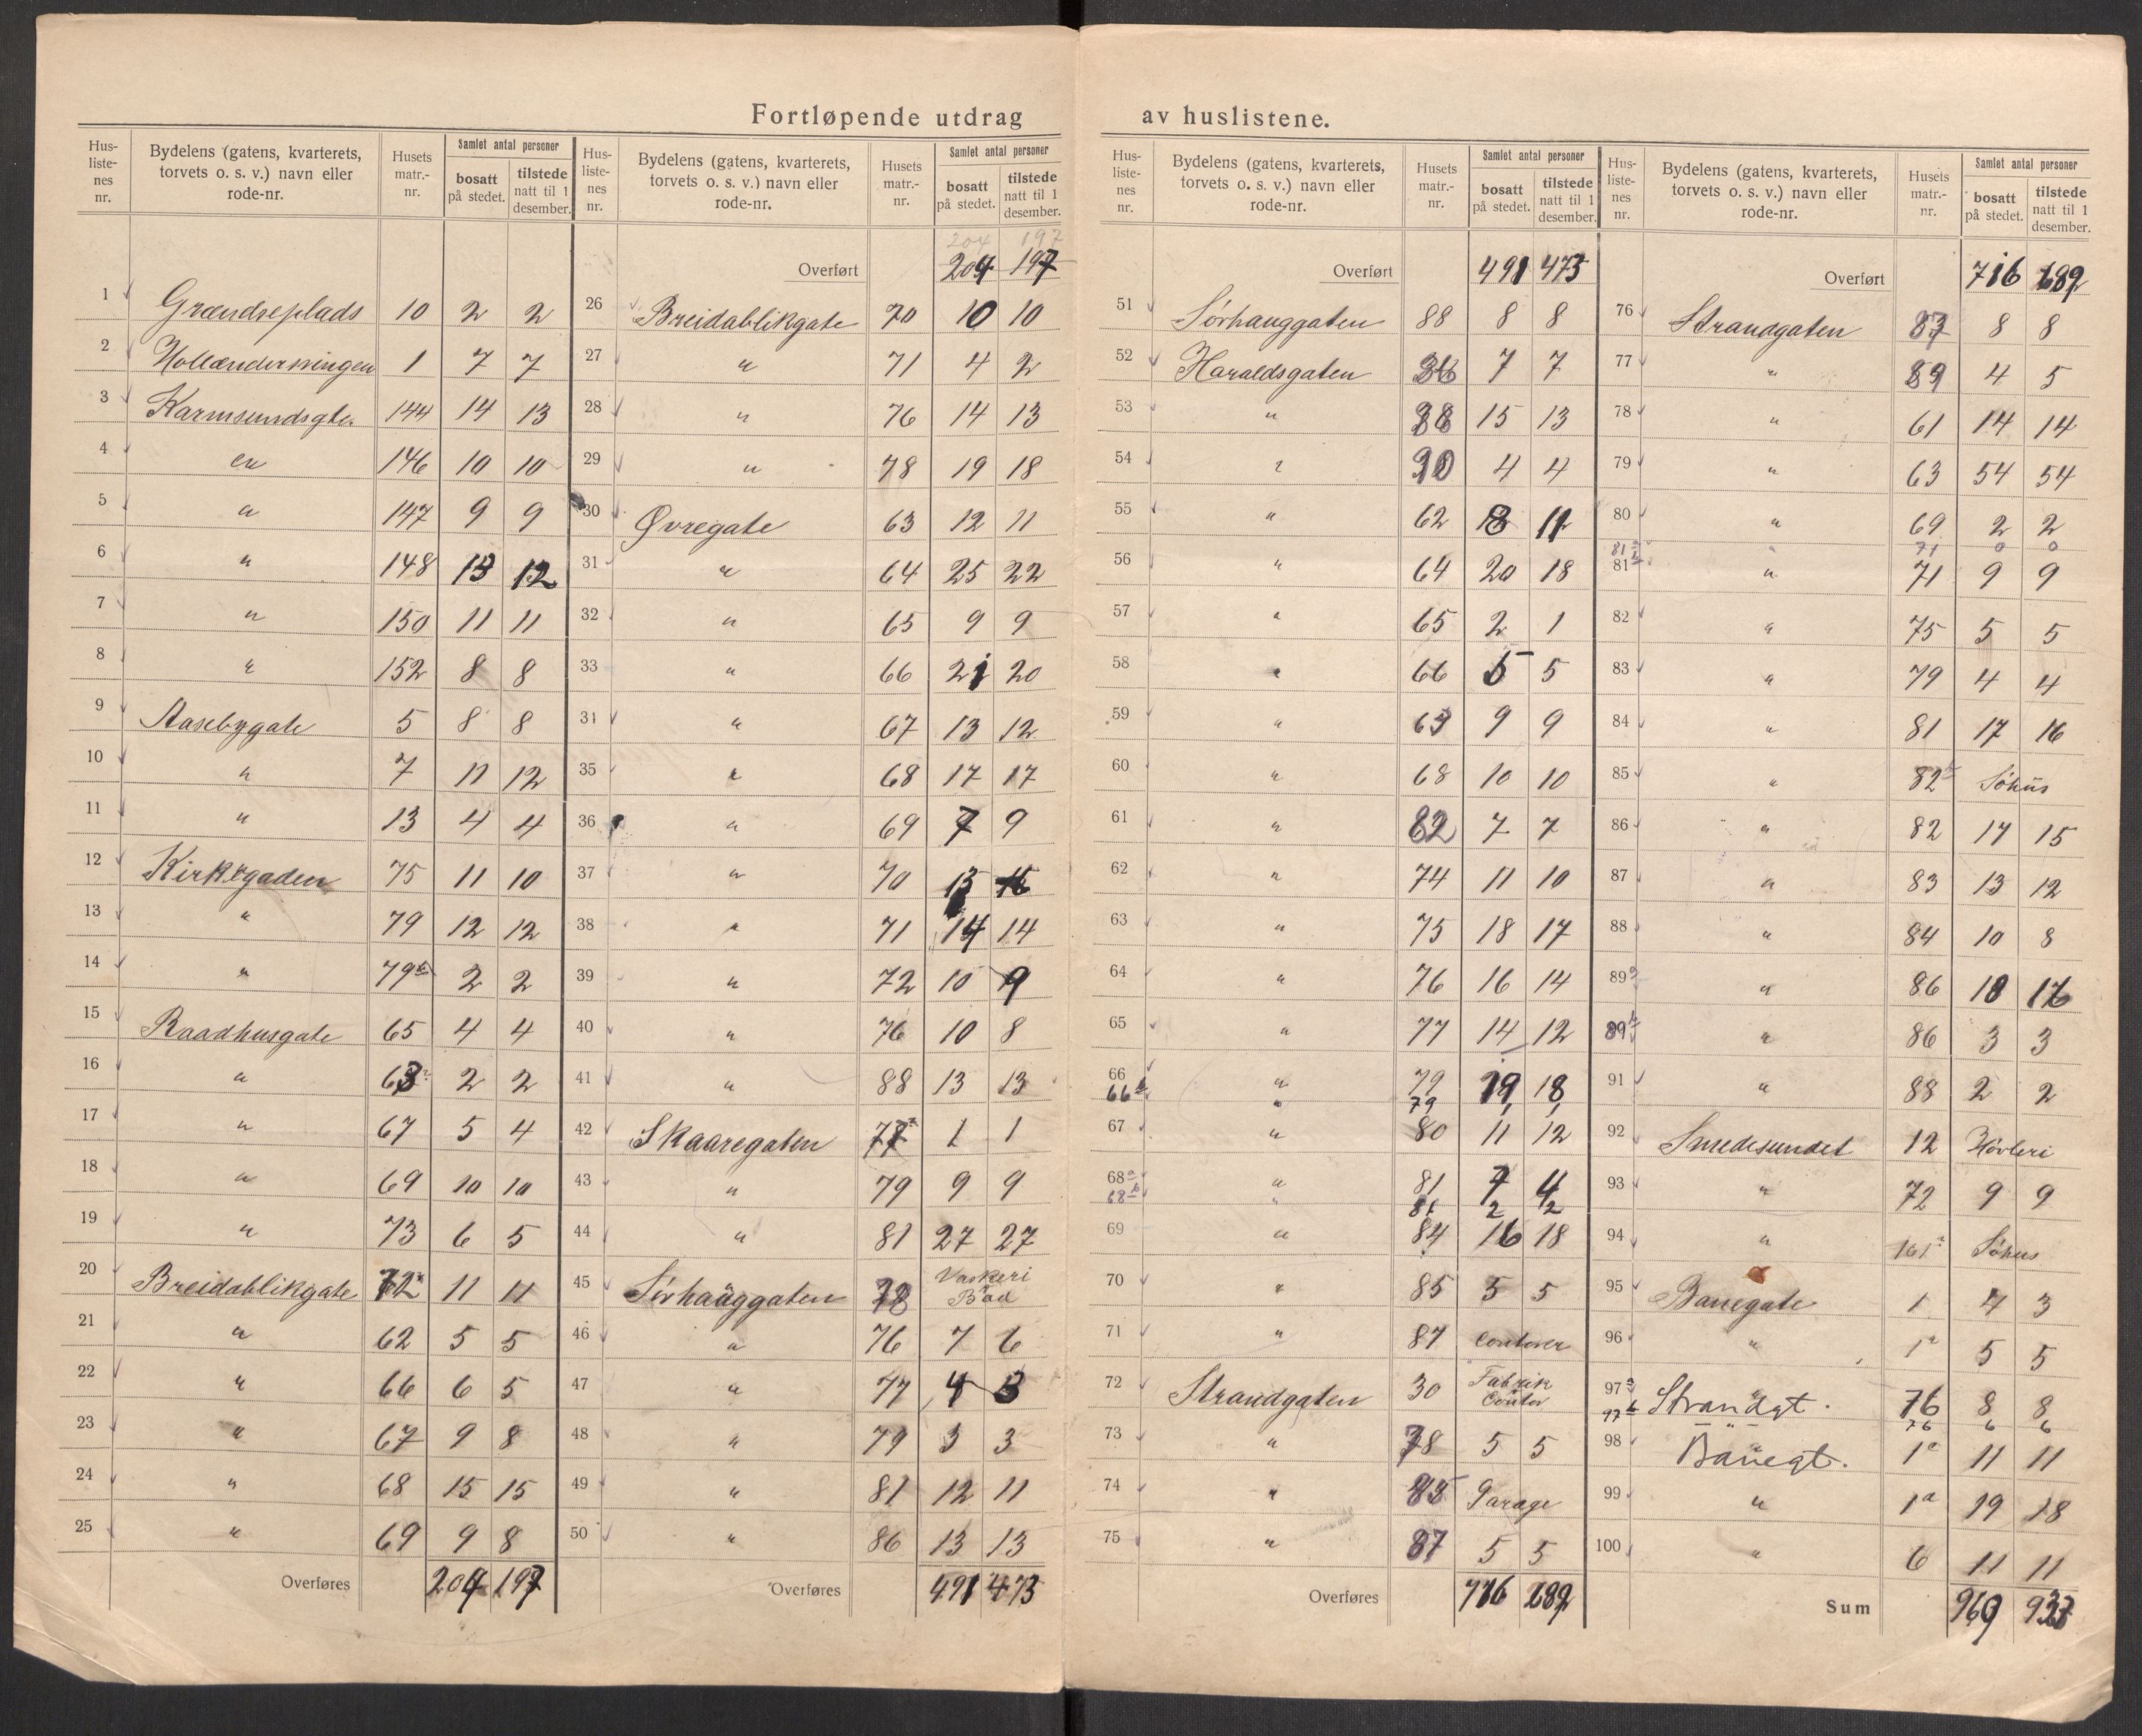 Fortløpende utdrag av huslistene.
Hus-liste-nes nr. Bydelens (gatens, kvarterets, torvets o. s. v.) navn eller rode-nr. Husets matr.-nr. Samlet antal personer bosatt på stedet. tilstede natt til 1 desember.
1 Grændseplads 10 2 2
2 Hollændersvingen 1 7 7
3 Karmsundsgte. 144 14 13
4 " 146 10 10
5 " 147 9 9
6 " 148 13 12
7 " 150 11 11
8 " 152 8 8
9 Aasebygate 5 8 8
10 " 7 11 12
11 " 13 4 4
12 Kirkegaden 75 11 10
13 " 79 12 12
14 " 79b 2 2
15 Raadhusgate 65 4 4
16 " 63a 2 2
17 " 67 5 4
18 " 69 10 10
19 " 73 6 5
20 Breidablikgate 72a 11 11
21 " 62 5 5
22 " 66 6 5
23 " 67 9 8
24 " 68 15 15
25 " 69 9 8
Overføres 204 197
Hus-liste-nes nr. Bydelens (gatens, kvarterets, torvets o. s. v.) navn eller rode-nr. Husets matr.-nr. Samlet antal personer bosatt på stedet. tilstede natt til 1 desember.
204 197
Overført 204 197
26 Breidablikgate 70 10 10
27 " 71 4 2
28 " 76 14 13
29 " 78 19 18
30 Øvregate 63 12 11
31 " 64 25 22
32 " 65 9 9
33 " 66 21 20
34 " 67 13 12
35 " 68 17 17
36 " 69 7 9
37 " 70 15
38 " 71 14 14
39 " 72 10 9
40 " 76 10 8
41 " 88 13 13
42 Skaaregaten 77a 1 1
43 " 79 9 9
44 " 81 27 27
45 Sørhauggaten 78 Vaskeri Bad
46 " 76 7 6
47 " 77 4 3
48 " 79 3 3
49 " 81 12 11
50 " 86 13 13
Overføres 491 473
Hus-liste-nes nr. Bydelens (gatens, kvarterets, torvets o. s. v.) navn eller rode-nr. Husets matr.-nr. Samlet antal personer bosatt på stedet. tilstede natt til 1 desember.
Overført 491 473
51 Sørhauggaten 88 8 8
52 Haraldsgaten 36 7 7
53 " 38 15 13
54 " 90 4 4
55 " 62 18 11
56 " 64 20 18
57 " 65 2 1
58 " 66 5 5
59 " 63 9 9
60 " 68 10 10
61 " 82 7 7
62 " 74 11 10
63 " 75 18 17
64 " 76 16 14
65 " 77 14 12
66 " 79 19 18
66b " 79 1 1
67 " 80 11 12
68a " 81 7 4
68b " 81 2 2
69 " 84 16 18
70 " 85 5 5
71 " 87 Contorer
72 Strandgaten 30 Fabrik Contor
73 " 78 5 5
74 " 85 Garage
75 " 87 5 5
Overføres 716 689
Hus-liste-nes nr. Bydelens (gatens, kvarterets, torvets o. s. v.) navn eller rode-nr. Husets matr.-nr. Samlet antal personer bosatt på stedet. tilstede natt til 1 desember.
Overført 716 689
76 Strandgaten 87 8 8
77 " 89 4 5
78 " 61 14 14
79 " 63 54 54
80 " 69 2 2
81a " 71 0 0
81b " 71 9 9
82 " 75 5 5
83 " 79 4 4
84 " 81 17 16
85 " 82b Søhus
86 " 82 17 15
87 " 83 13 12
88 " 84 10 8
89a " 86 18 16
89b " 86 3 3
91 " 88 2 2
92 Smedesundet 12 Høvleri
93 " 72 9 9
94 " 161a Søhus
95 Banegate 1 4 3
96 " 1a 5 5
97a Strandgt. 76 8 8
97b " 76 6 6
98 Banegt. 1a 11 11
99 " 1a 19 18
100 " 6 11 11
Sum 969 937